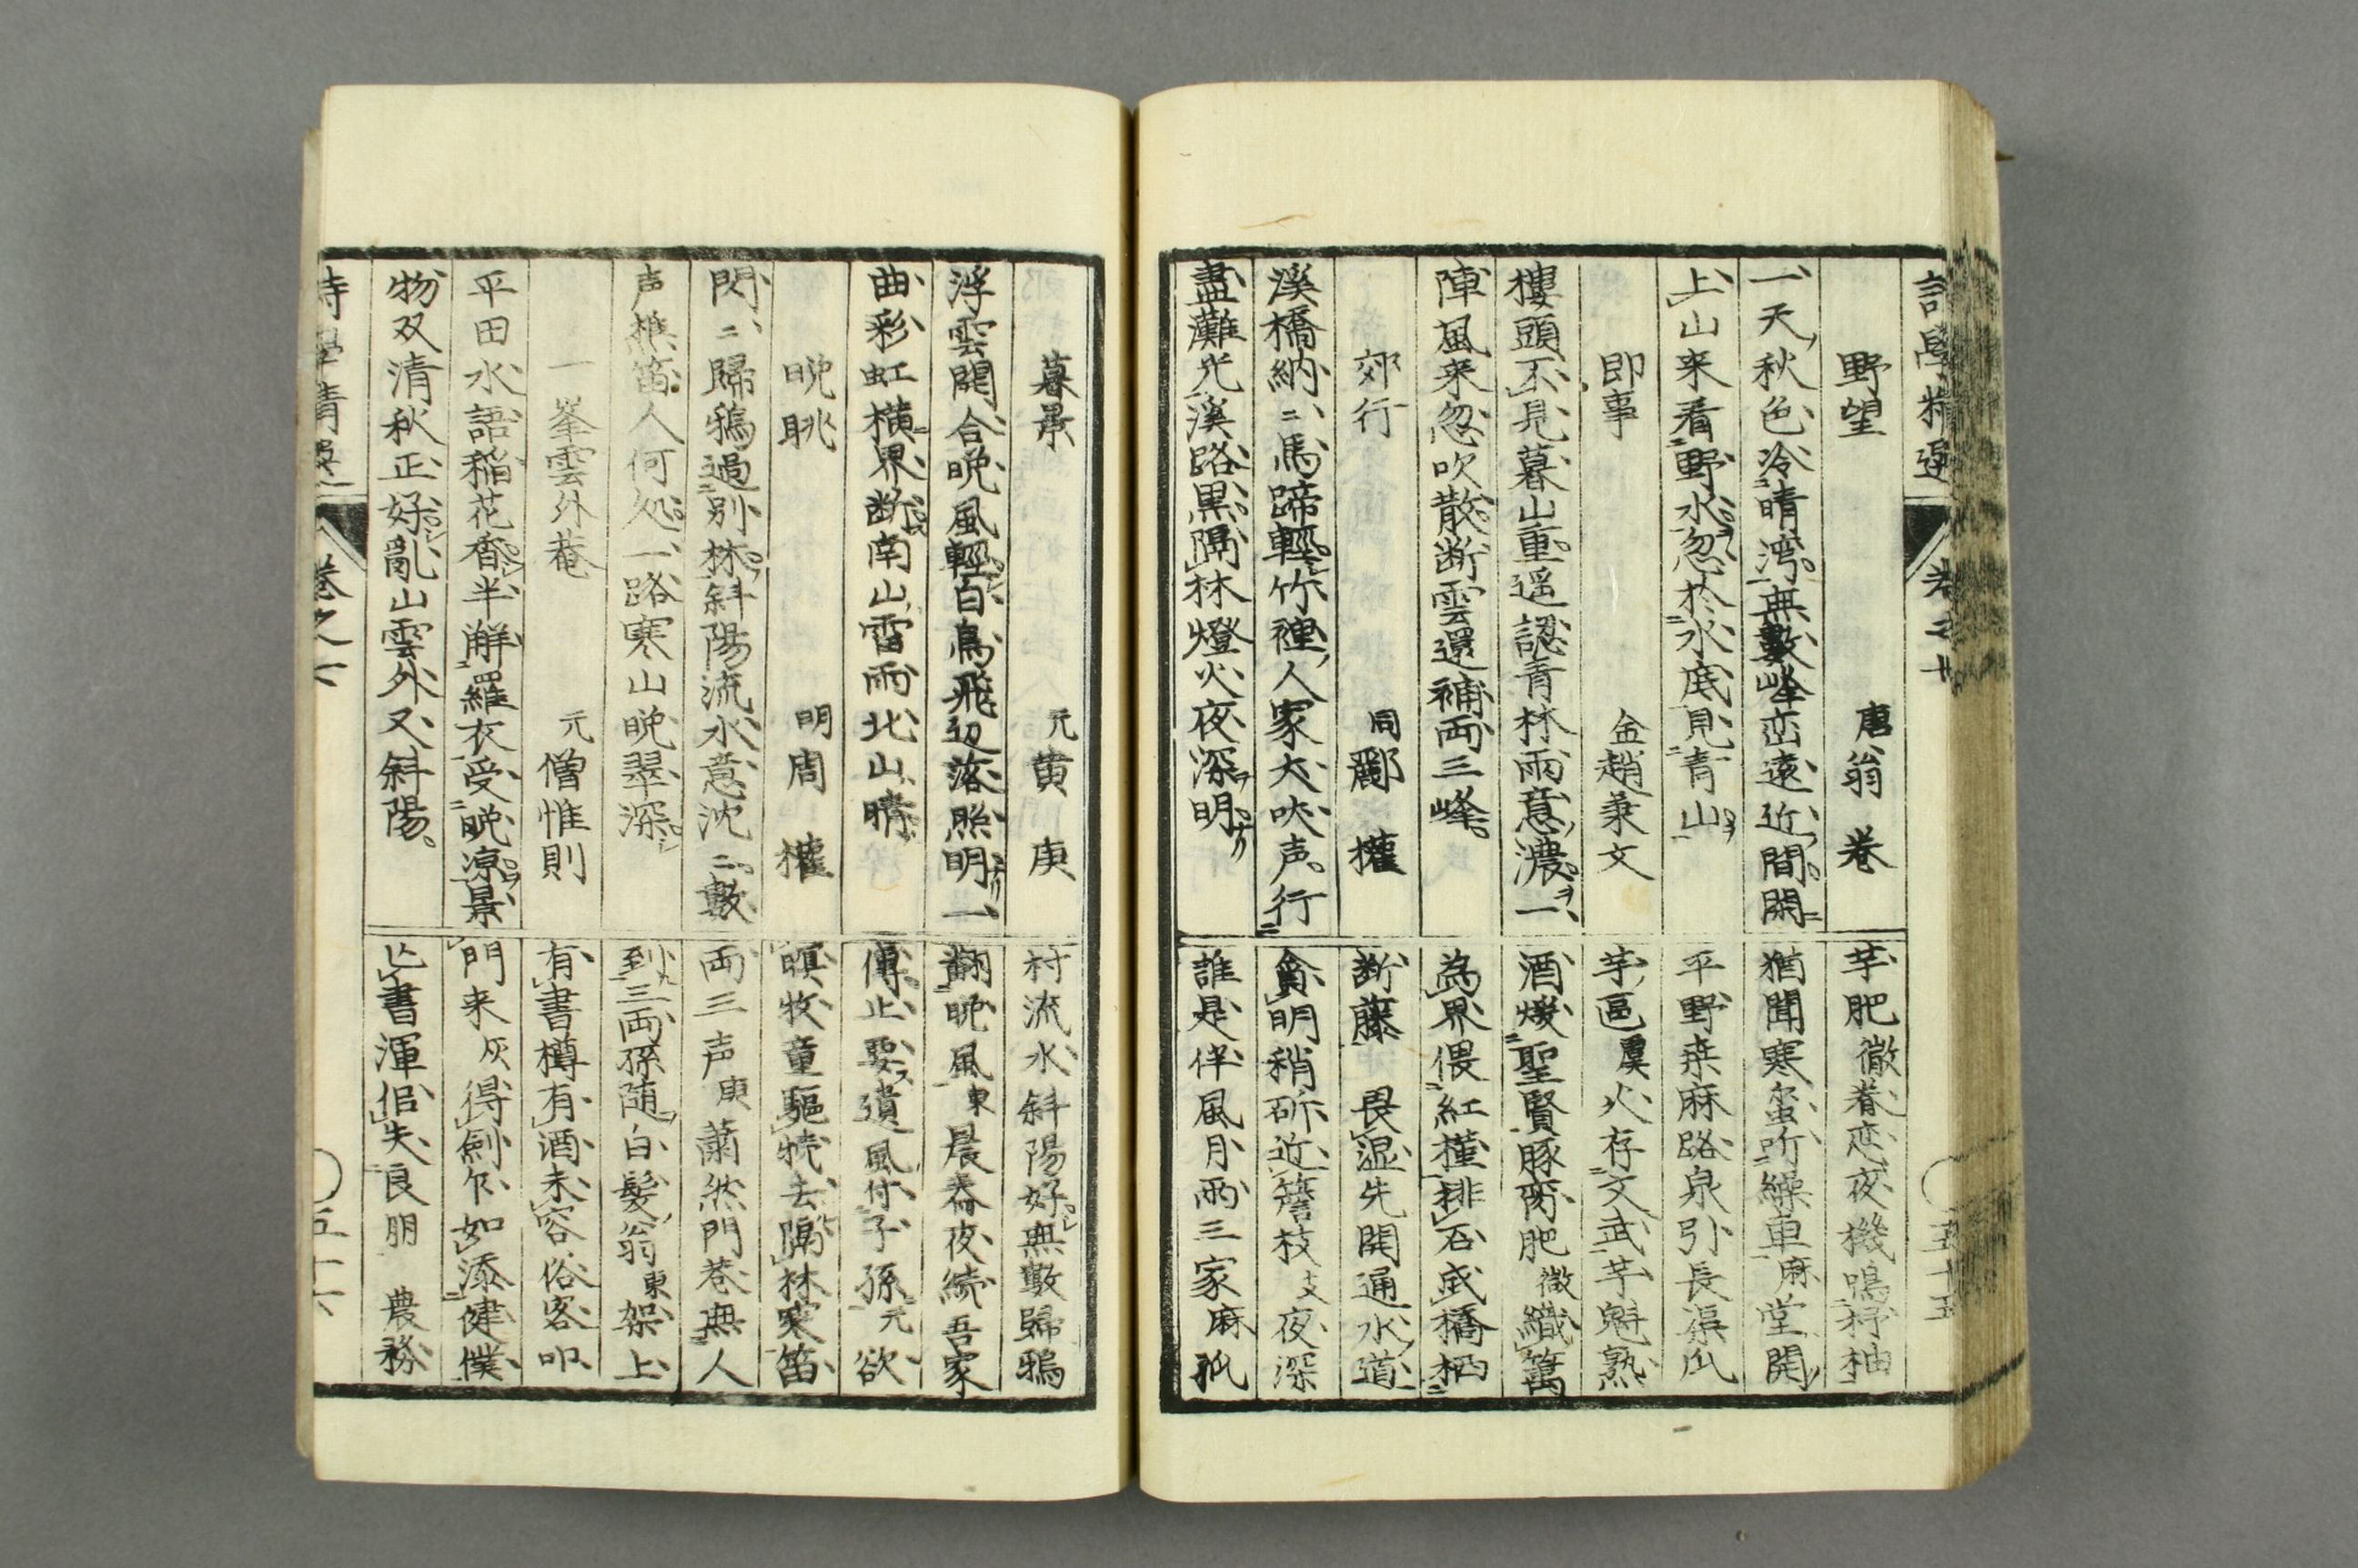 野望 唐翁 巻
一天秋色冷晴湾無數峰峦遠近間閑
上山来看野水忽於水底見青山
即事 金趙秉文
樓頭不見暮山重遥認青林雨意濃一
陣風来忽吹散断雲還補両三峰
郊行 同酈 權
溪橋納〻馬蹄輕竹裡人家犬吠声行
盡灘光溪路黒隔林燈火夜深明
芋肥微眷恋夜機鳴杼柚
猶聞寒蛩吟繰車麻堂開
平野桒麻路泉引長渠瓜
芋區虞火存文武芋魁熟
酒煖聖賢豚肥微織籬
為界偎紅槿排石成橋栖
断藤 畏湿先開通水道
貪明稍斫近簷枝支夜深
誰是伴風月両三家麻孤
暮景 元黄 庚
浮雲開合晩風輕白鳥飛辺落照明一
曲彩虹横界断南山雷雨北山晴
晩眺 明周 權
閃〻歸鴉過別林斜陽流水意沈〻數
声樵笛人何処一路寒山晩翠深
一峯雲外菴 元僧惟則
平田水語稲花香半解羅衣受晩凉景
物双清秋正好亂山雲外又斜陽
村流水斜陽好無數歸鴉
翻晩風東晨舂夜績吾家
傳止要遺風付子孫元欲
暝牧童驅犢去隔林寒笛
両三声庚蕭然門巷無人
到三両孫随白髪翁東架上
有書樽有酒未容俗客叩
門来灰得劍乍如添健僕
亡書渾似失良朋 農務
詩學精選 巻之六
五十六
五十五